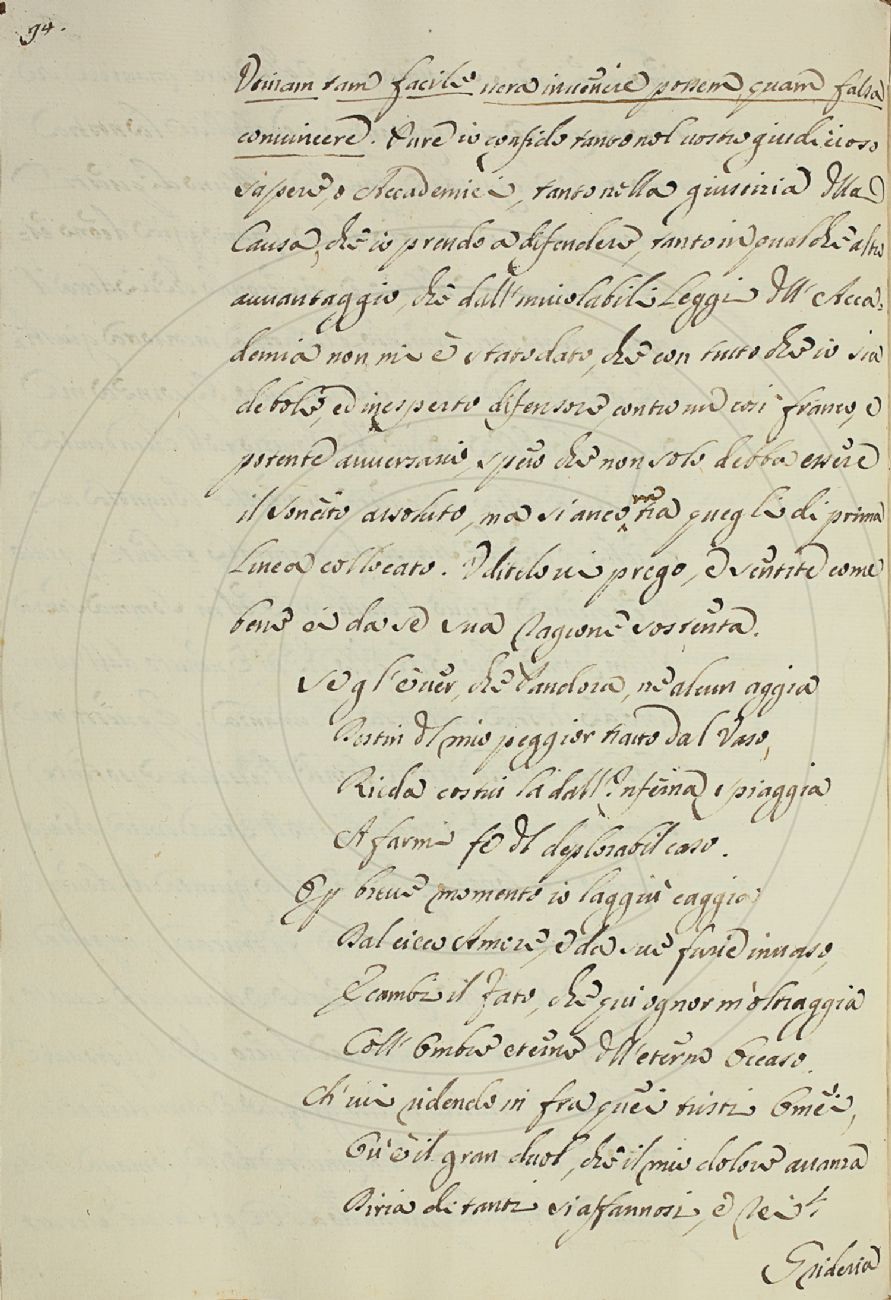 94.
Utinam tam facile vera invenire possem, quam falsa
convincere. Pure io confido tanto nel vostro giudicioso
sapere, o Accademici, tanto nella giustizia della
Causa, che io prendo a difendere, tanto in qualche altro
avvantaggio, che dall'inviolabili Leggi dell'Acca-
demia non mi è stato dato, che con tutto che io sia
debole, ed inesperto difensore, contro un così franco, e
potente avversario, spero che non solo debba essere
il Sonetto assoluto, ma si anco tra quegli di prima
Linea collocato. Uditelo vi prego, e sentite come
bene ei da se sua Ragione sostenta.
Se gl'è ver, che Pandora, ne alcun aggia
Destin del mio peggior tratto dal Vaso,
Rieda costui la dall'Inferna spiaggia
A farmi fe del deplorabil caso.
O per breve momento io laggiù caggia
Dal cieco Amore, e da sue furie invaso,
E cambi il Fato, che qui ognor m'oltraggia
Coll'Ombre eterne dell'eterno Occaso.
Ch'ivi ridendo in fra quei tristi Omei,
Ov'è il gran duol, che il mio dolore avanza
Diria di tanti si affannosi, e Rei
Grideria